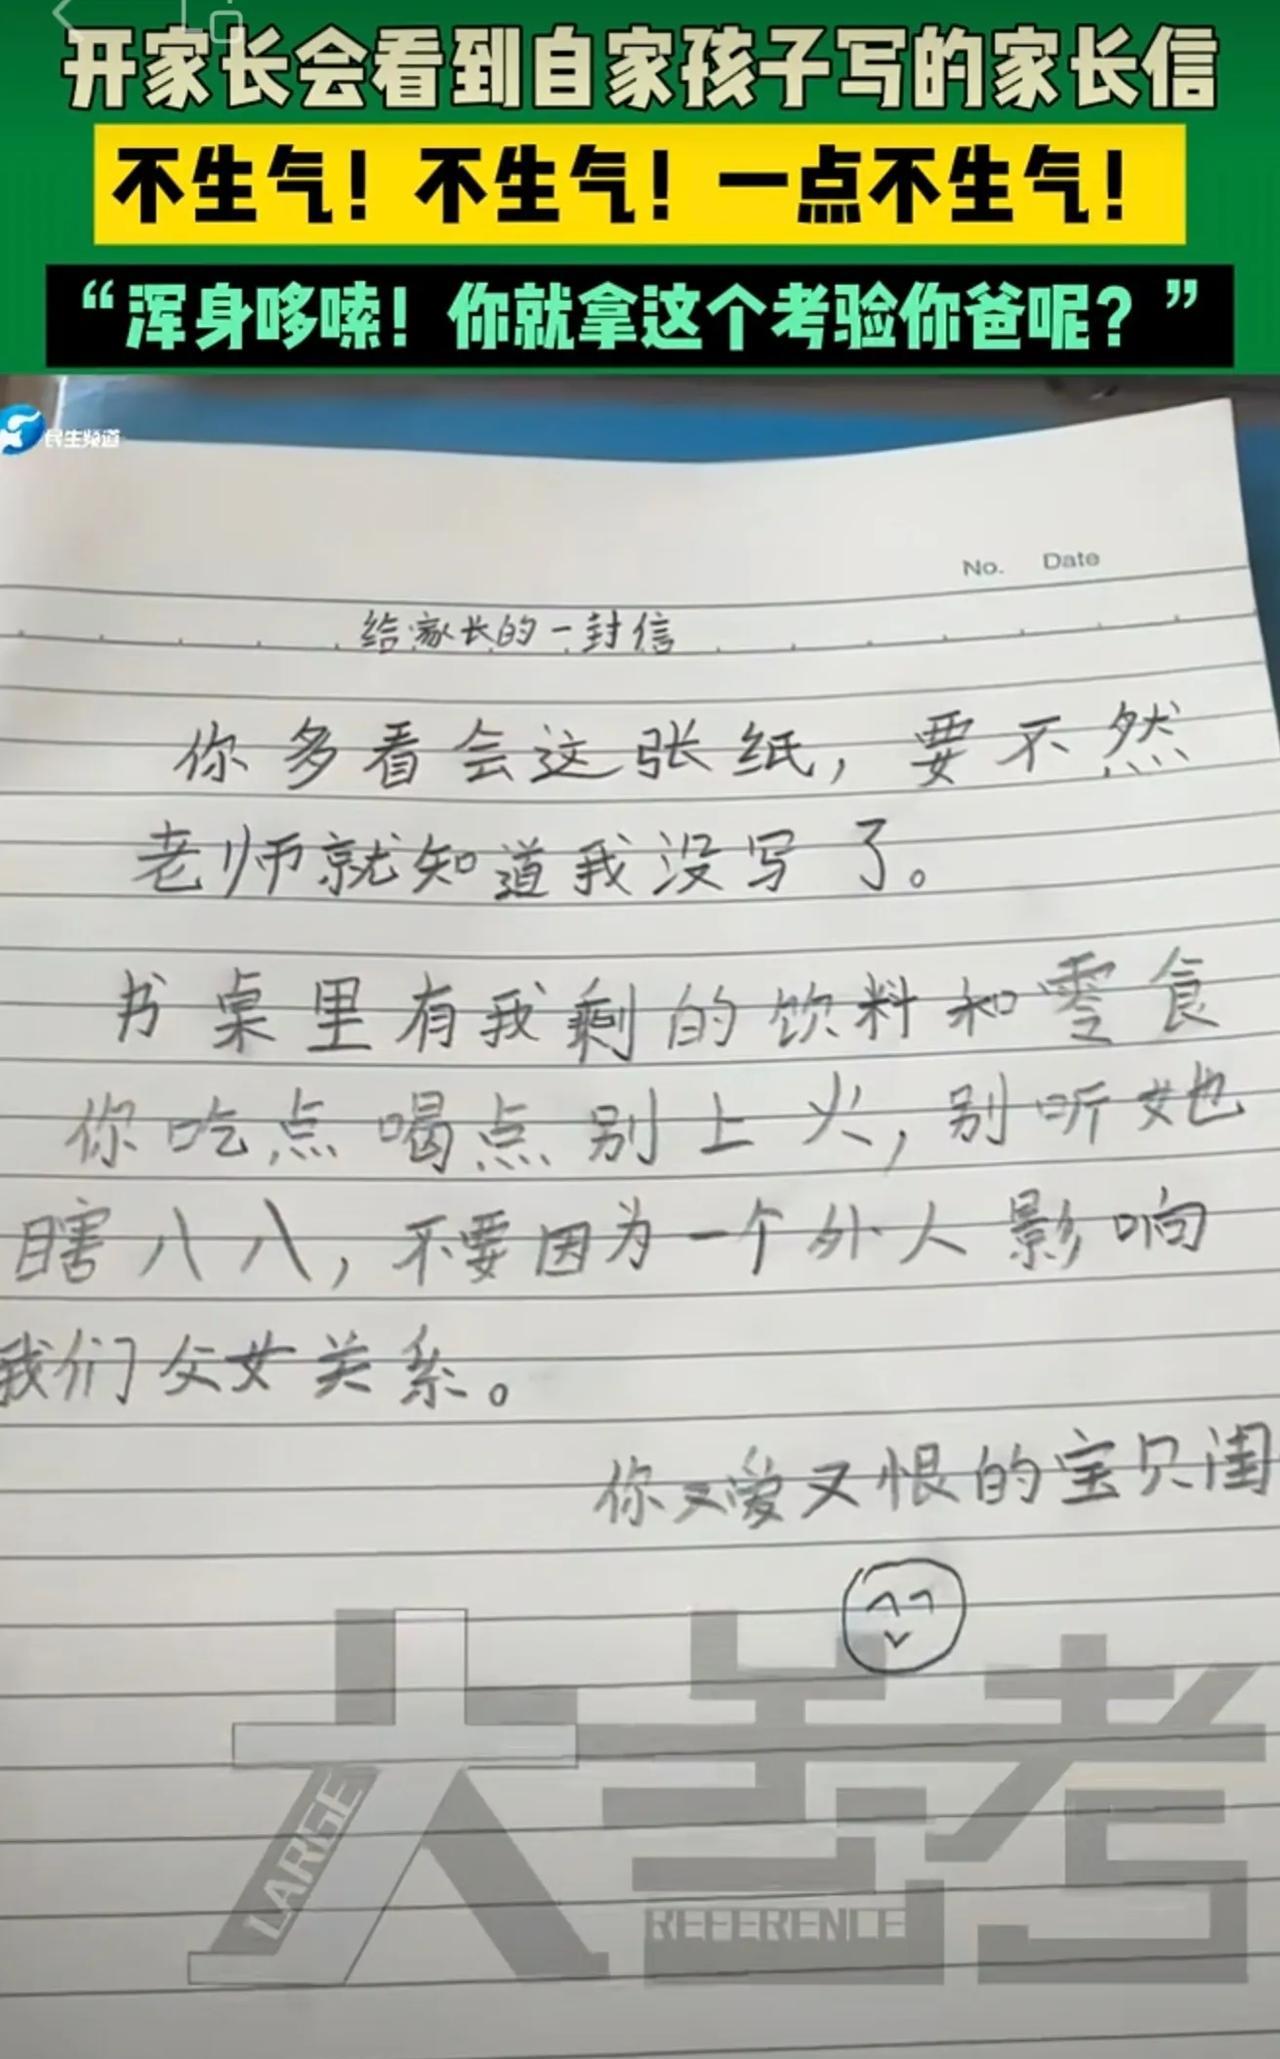 开家长会看到自家孩子写的家长信
不生气！不生气！一点不生气！
“浑身哆嗦！你就拿这个考验你爸呢？”
民生频道
No. Date
给家长的一封信
你多看会这张纸，要不然
老师就知道我没写了。
书桌里有我剩的饮料和零食
你吃点喝点别上火，别听她
瞎八八，不要因为一个外人影响
我们父女关系。
你又爱又恨的宝贝闺
大参考
LARGE
REFERENCE